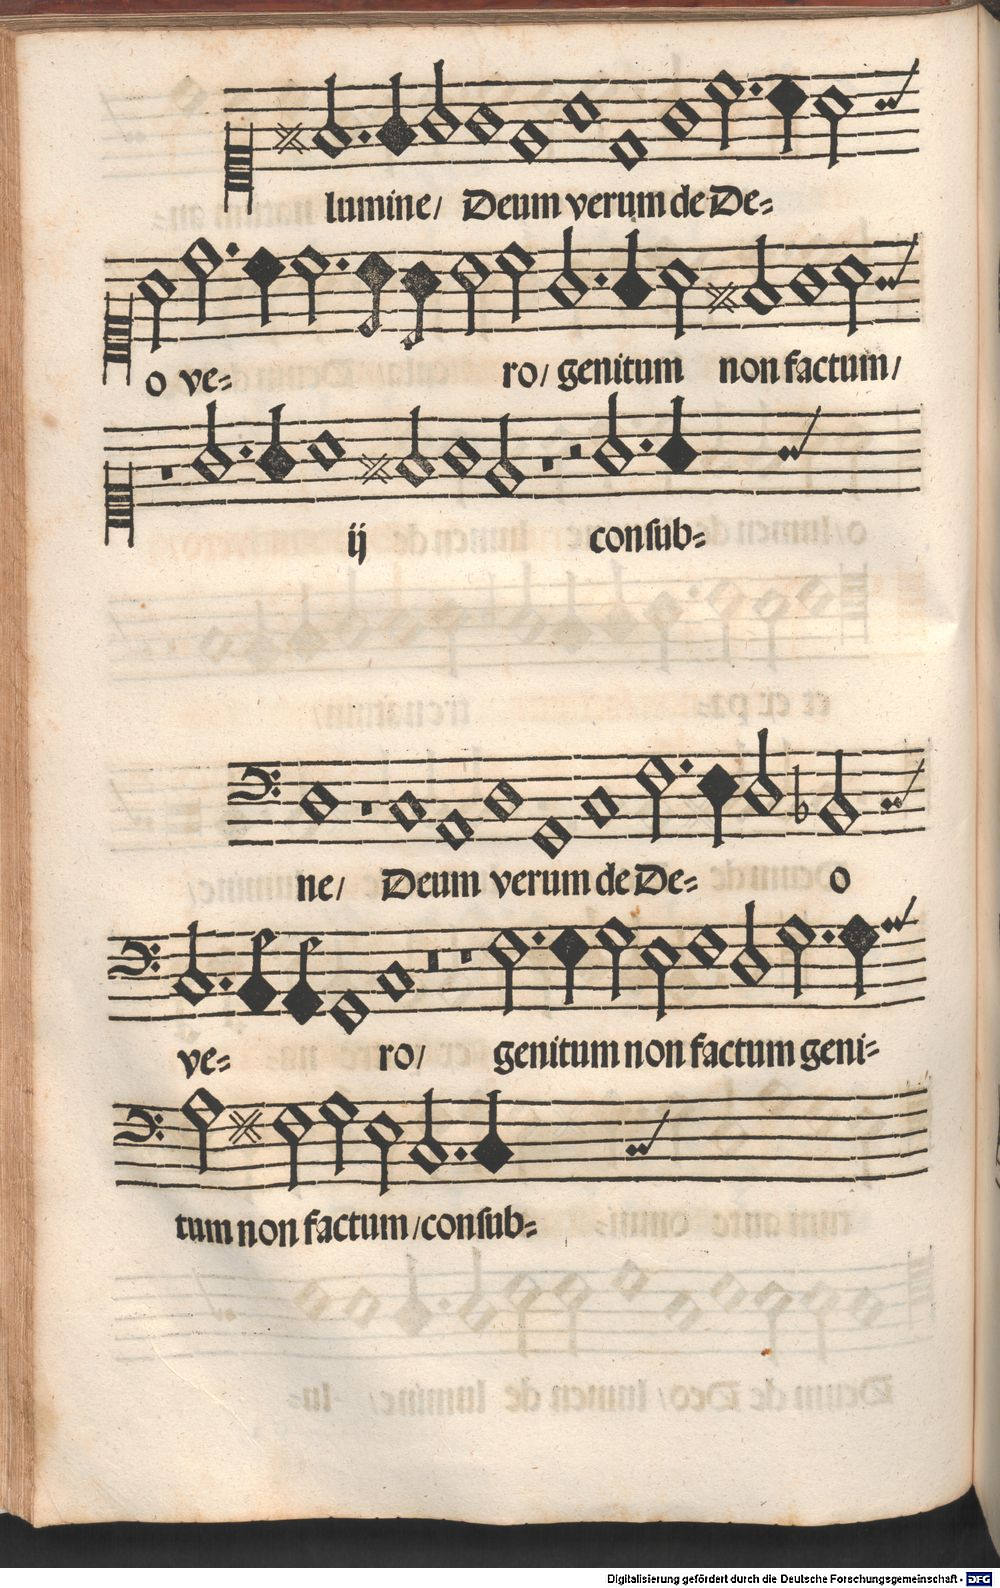 lumine/ Deum verum de De=
o ve= ro/ genitum non factum/
ij conſub=
ne/ Deum verum de De= o
ve= ro/ genitum non factum geni=
tum non factum/conſub=
Digitalisierung gefördert durch die Deutsche Forschungsgemeinschaft - DFG